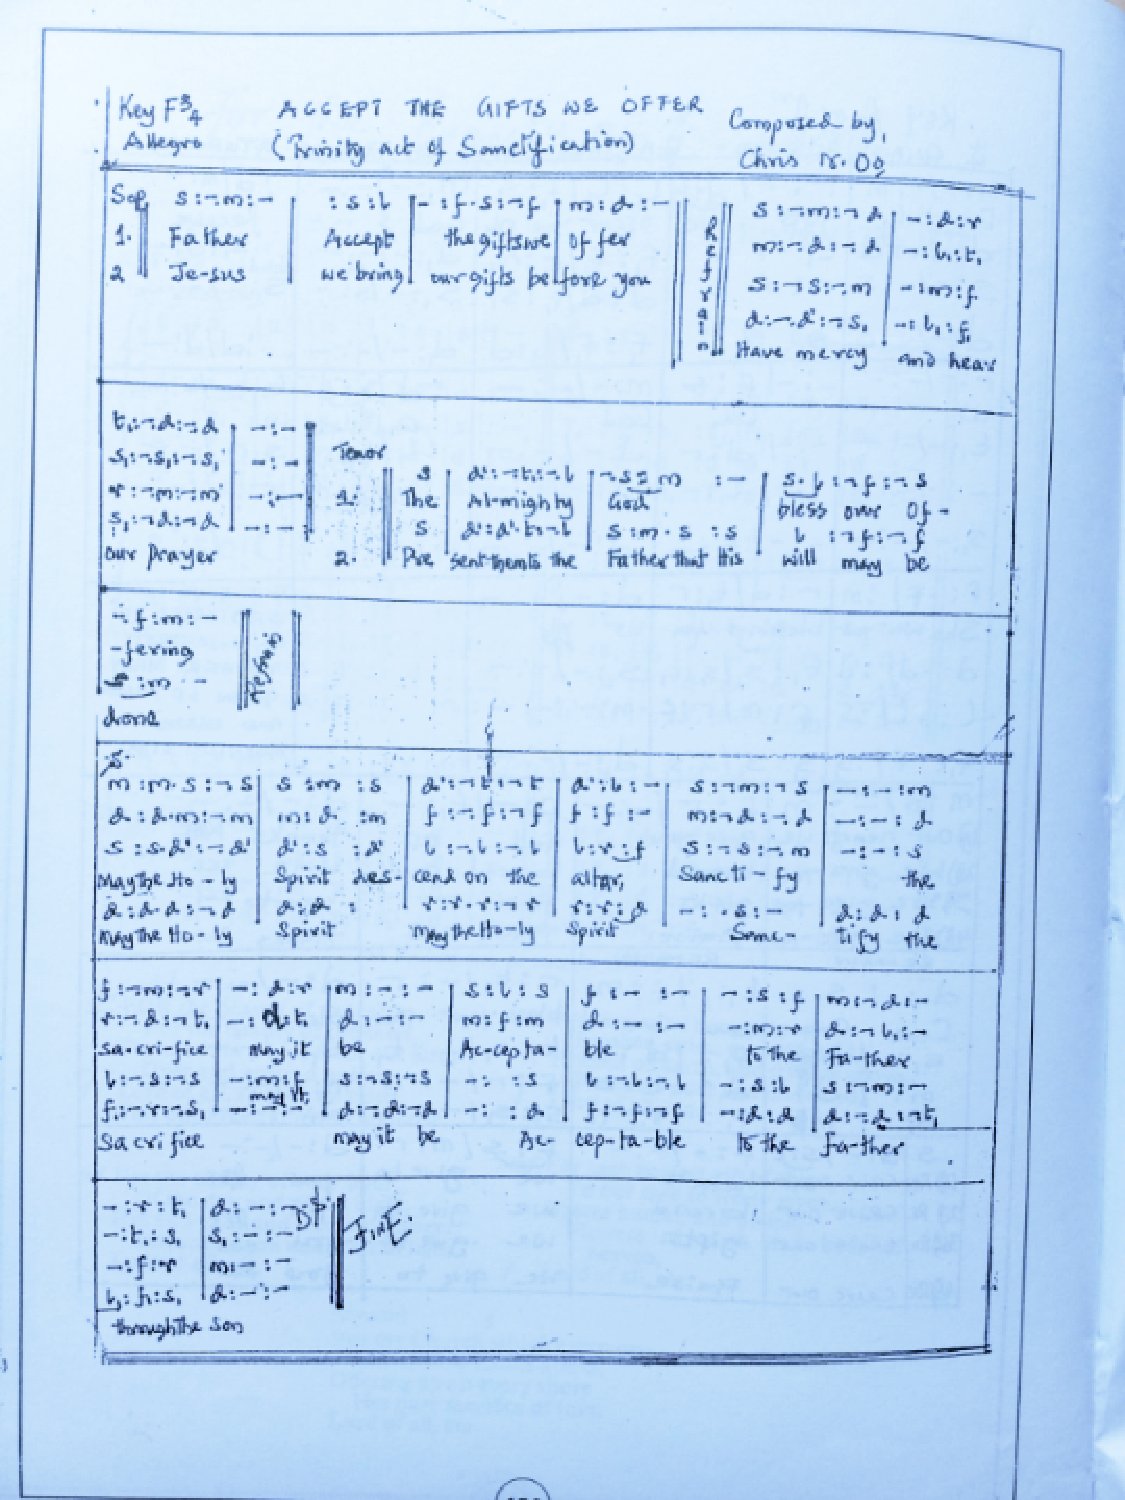 Key F 3/4 ACCEPT THE GIFTS WE OFFER
Allegro (Trinity act of Sanctification)
Composed by,
Chris N. Oo
Sop s:¬m:– | :s:l | –:f.s:¬f | m:d:–
1. Father Accept the gifts we of fer
2 Je-sus we bring our gifts be fore you
Refrain
s:¬m:¬d | –:d:r
m:¬d:¬d | –:l₁:t₁
s:¬s:¬m | –:m:f
d:¬d':¬s₁ | –:l₁:f₁
Have mercy and hear
t₁:¬d:¬d | –:–
s₁:¬s₁:¬s₁ | –:–
r:¬m:¬m | –:–
s₁:¬d:¬d | –:–
our prayer
Tenor
s | d':¬t:¬l | ¬s:m :– | s.l:¬f:¬s
1. The Al-mighty God bless our Of-
s | d':d'.t:¬l | s:m.s :s | l:¬f:¬f
2. Pre sent them to the Father that His will may be
–:f:m:–
-fering
s:m –
done
Refrain
S.
m:m.s:¬s | s:m:s | d':¬t:¬t | d':l:– | s:¬m:¬s | –:–:m
d:d.m:¬m | m:d:m | f:¬f:¬f | f:f:– | m:¬d:¬d | –:–:d
s:s.d':¬d' | d':s:d' | l:¬l:¬l | l:r:f | s:¬s:¬m | –:–:s
May the Ho-ly Spirit des- cend on the altar, Sancti-fy the
d:d.d:¬d | d:d: | r:r.r:¬r | r:r:d | –:.s:– | d:d:d
May the Ho-ly Spirit May the Ho-ly Spirit Sanc- tify the
f:¬m:¬r | –:d:r | m:–:– | s:l:s | f:–:– | –:s:f | m:¬d:–
r:¬d:¬t₁ | –:d:t₁ | d:–:– | m:f:m | d:–:– | –:m:r | d:¬l₁:–
Sa-cri-fice may it be Ac-cep-ta- ble to the Fa-ther
l:¬s:¬s | –:m:f | s:¬s:¬s | –: :s | l:¬l:¬l | –:s:l | s:¬m:–
may it
f₁:¬r:¬s₁ | –:–:– | d:¬d:¬d | –: :d | f:¬f:¬f | –:d:d | d:¬d:¬t₁
Sacrifice may it be Ac- cep-ta-ble to the Fa-ther
–:r:t₁ | d:–:–
–:t₁:s₁ | s₁:–:–
–:f:r | m:–:–
l₁:f₁:s₁ | d:–:–
through the son
FINE